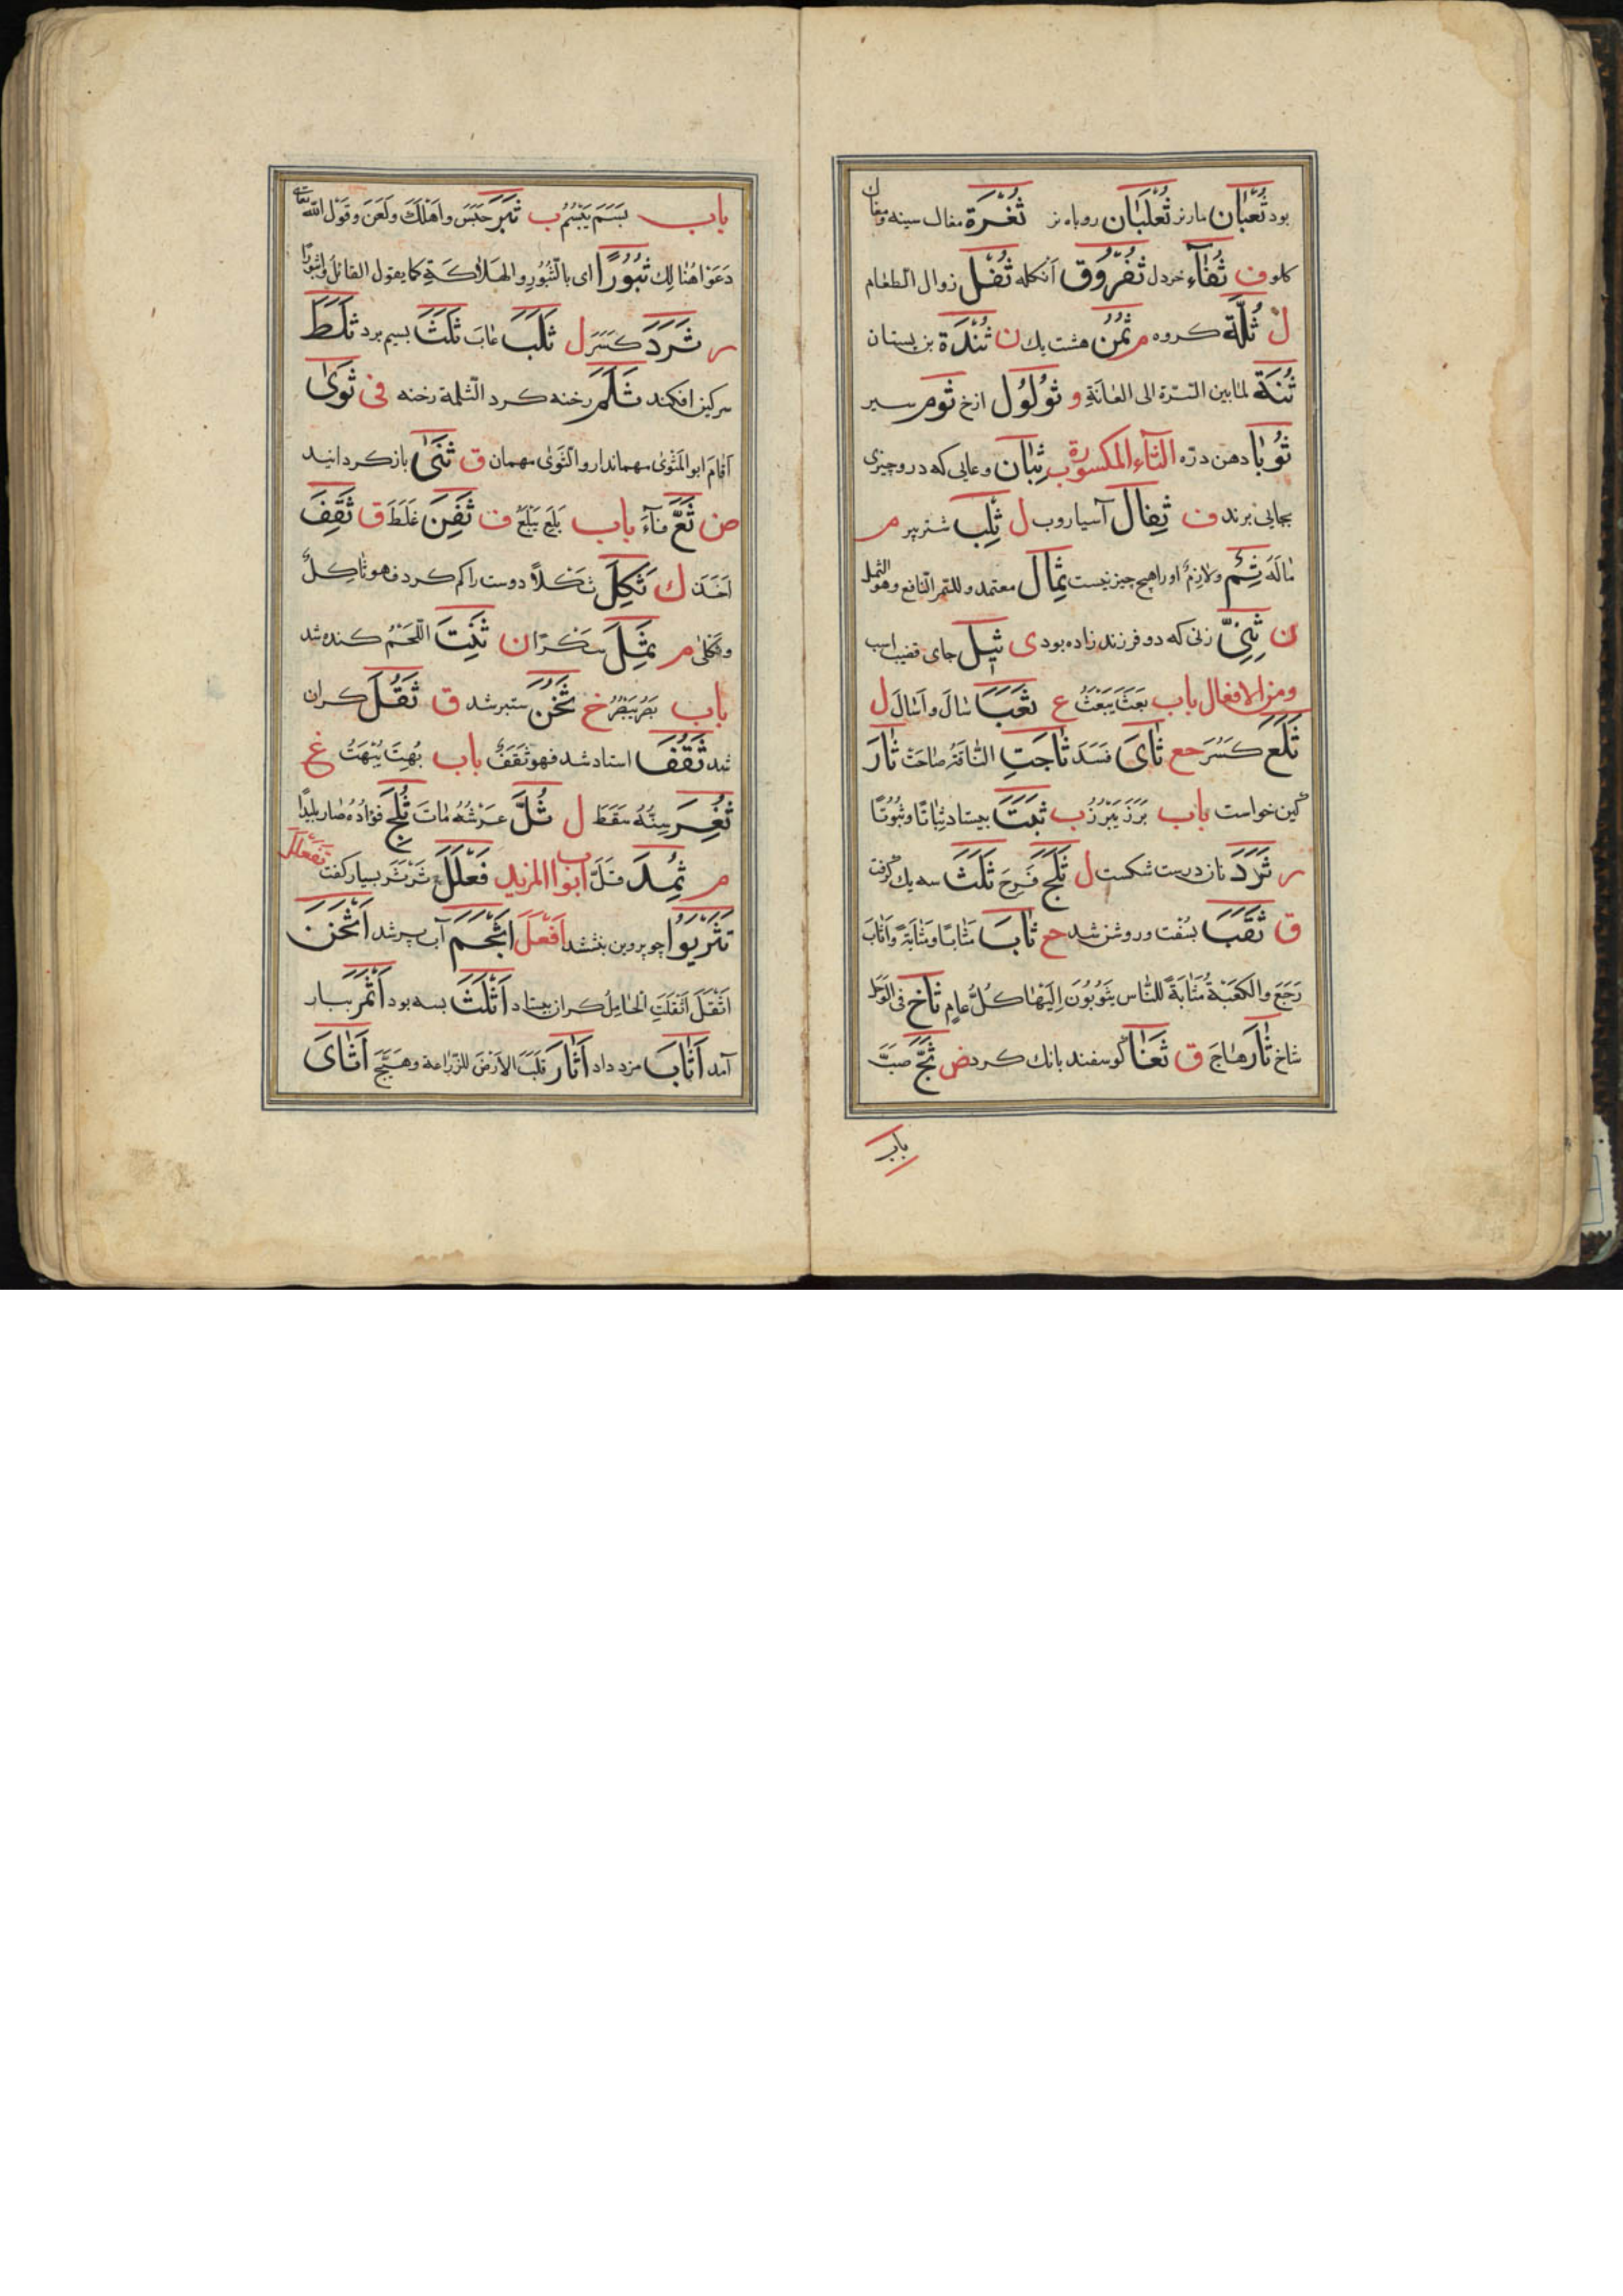 بود ثُعْبَان مار نر ثُعْلُبَان روباه نر ثُغْرَة مغاك سینه و مغاك
کلو ف ثُفَّآء خردل ثُفْرُوق انکله ثُفْل زوال الطعام
ل ثُلَّة کروه م ثُمُن هشت یك ن ثُنْدُوَة بن پستان
ثُنَّة لما بین السّرّة الی العَانَةِ و ثُؤْلُوْل ازخ ثوم سیر
ثُوَبَا دهن درّه الثآء المکسورة ب ثِبَان وعایی که در و چیزی
بجایی برند ف ثِفَال آسیاروب ل ثِلِب شتر پیر م
مَالَهُ ثِمٌّ ولارِمٌّ او را هیچ چیز نیست ثِمَال معتمد و للتمر النافع وهو الثمل
ن ثِنْیٌ زنی که دو فرزند زاده بود ی ثِیْل جای قضیب اسب
ومن الافعال باب بَعَثَ یَبْعَثُ ع ثَعَبَ سَالَ و اَسَالَ ل
ثَلَعَ کَسَرَ حع ثَأَیَ فَسَدَ ثَاجَتِ النَّاقَةُ صَاحَتْ ثَأَرَ
کین خواست باب بَرَزَ یَبْرُزُ ب ثَبَتَ بیستاد ثِبَاتًا و ثُبُوتًا
ر ثَرَدَ نان درست شکست ل ثَلَجَ فَرِحَ ثَلَثَ سه یك گرفت
ق ثَقَبَ بسُفت و روشن شد ح ثَابَ مَثَابًا و مَثَابَةً و اَثَابَ
رَجَعَ والکَعْبَةُ مَثَابَةً للنَّاس یَثُوْبُوْنَ اِلَیْهَا کُلَّ عَامٍ ثَاخَ فی الوَحَل
شاخ ثَارَ هَاجَ ق ثَغَا گوسفند بانك کرد ض ثَجَّ صَبَّ
باب
باب بَسَمَ یَبْسِمُ ب ثَبَرَ حَبَسَ و اَهْلَكَ و لَعَنَ و قَوْلُ الله تعالی
دَعَوْا هُنَالِكَ ثُبُورًا ای بالثُّبُورِ و الهَلَاکَةِ کما یقول القائل واثبورا
ر ثَرَدَ کَسَرَ ل ثَلَبَ عَابَ ثَلَثَ بسیم برد ثَلَطَ
سرکین افکند ثَلَمَ رخنه کرد الثلمة رخنه فی ثَوَیٰ
اَقَامَ ابو المَثْوٰی مهماندار و الثَوِیٰ مهمان ق ثَنَیٰ باز کردانید
ض ثَعَّ قَآءَ باب بَلِعَ یَبْلَعُ ف ثَفِنَ غَلَظَ ق ثَقِفَ
اَخَذَ ك ثَکِلَ ثَکَلًا دوست را کم کرد فهو ثَاکِلٌ
و ثَکْلٰی م ثَمِلَ سَکْرَان ثَنِتَ اللَّحْمُ کنده شد
باب بَصُرَ یَبْصُرُ خ ثَخُنَ ستبر شد ق ثَقُلَ کران
شد ثَقُفَ استاد شد فهو ثَقَفٌ باب بُهِتَ یُبْهَتُ غ
ثُغِرَ سِنُّهُ سَقَطَ ل ثُلَّ عَرْشُهُ مَاتَ ثُلِجَ فؤادُهُ صار بلیدًا
م ثُمِدَ قَلَّ ابواب المزید فَعْلَلَ ثَرْثَرَ بسیار کفت تَفَعْلَلَ
تَثَرْیَوُا چو پروین بنشستند اَفْعَلَ اَثْجَمَ آب پر شد اَثْخَنَ
اَثْقَلَ اَثْقَلَتِ الْحَامِلُ کران بیستاد اَثْلَثَ بسه بود اَثْمَرَ ببار
آمد اَثَابَ مزد داد اَثَارَ قَلَبَ الاَرْضَ للزّراعة و هَیَّجَ اَثْأَیَ